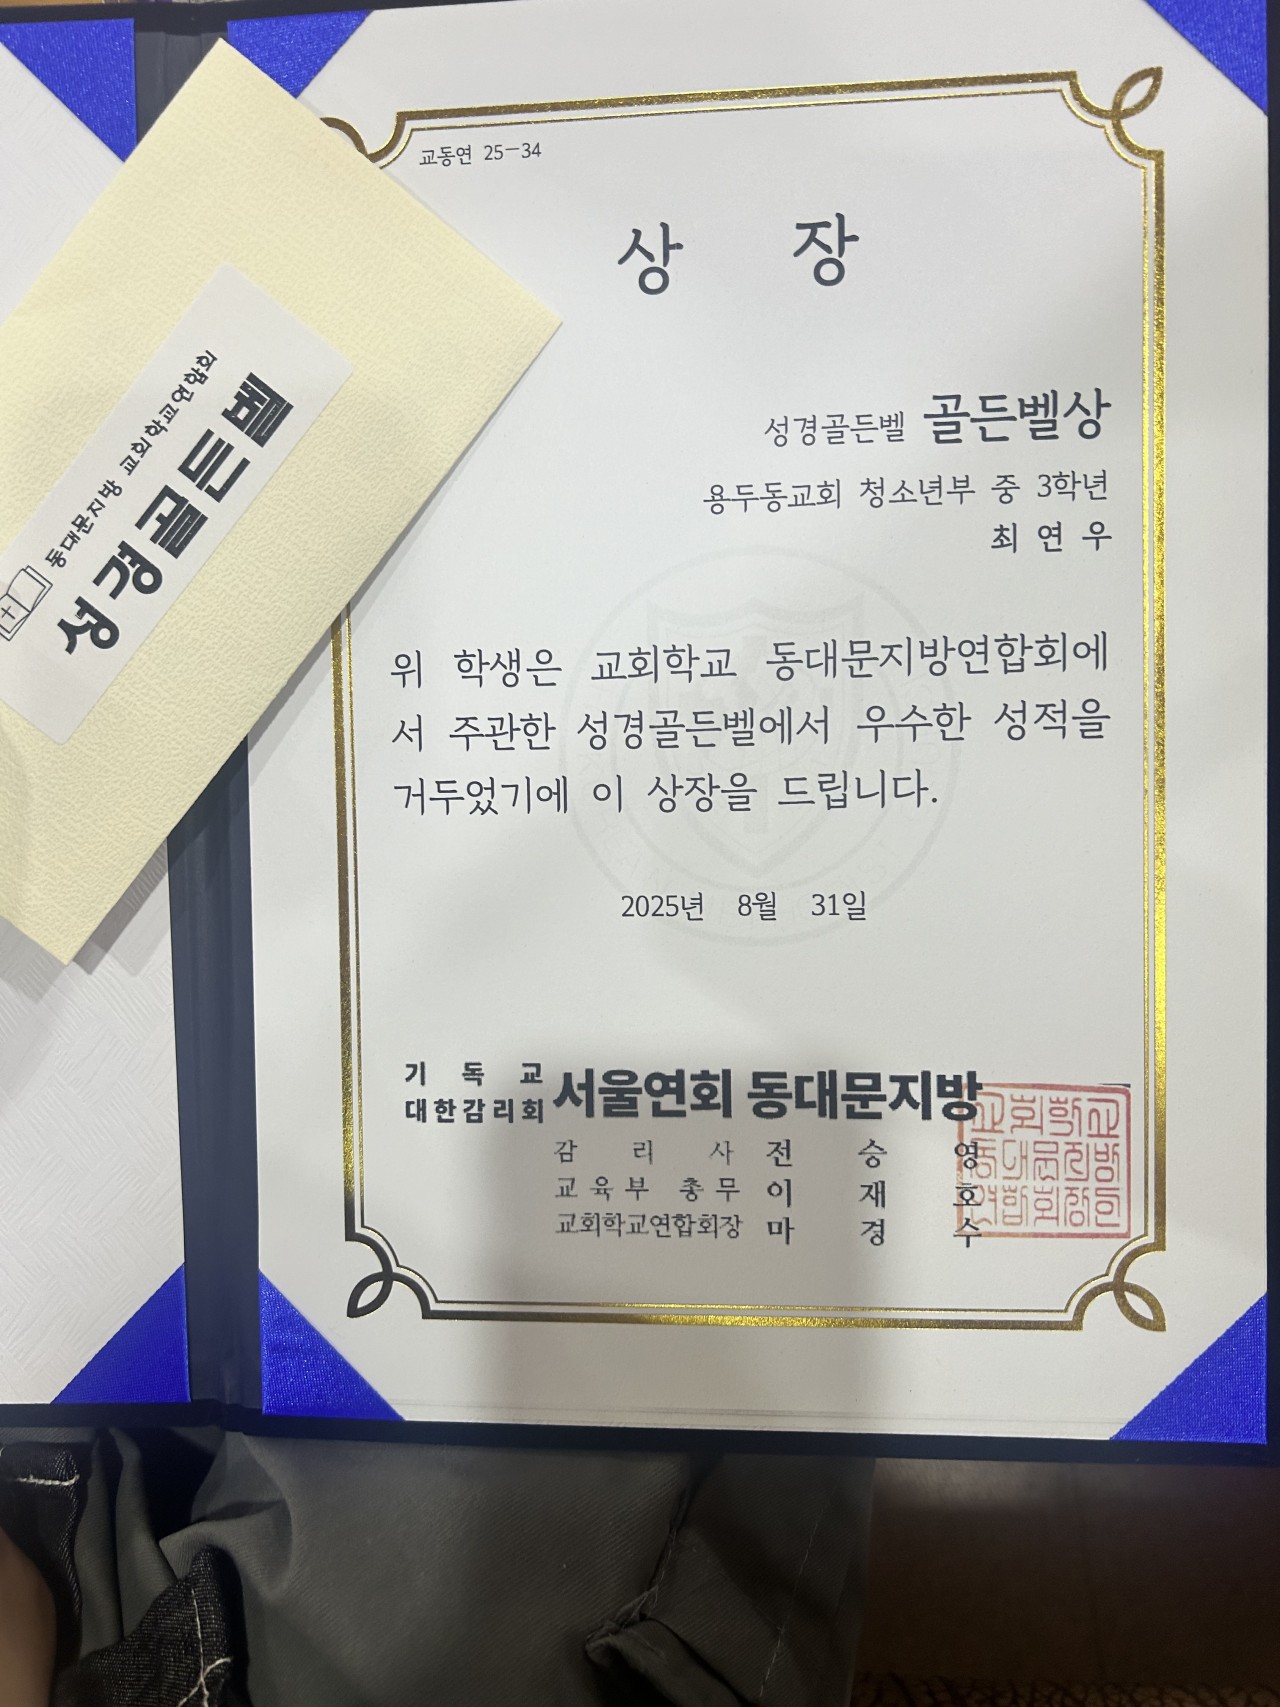 교동연 25-34
상 장
성경골든벨 골든벨상
용두동교회 청소년부 중 3학년
최 연 우
위 학생은 교회학교 동대문지방연합회에
서 주관한 성경골든벨에서 우수한 성적을
거두었기에 이 상장을 드립니다.
2025년 8월 31일
기 독 교
대한감리회 서울연회 동대문지방
감 리 사 전 승 영
교육부 총무 이 재 호
교회학교연합회장 마 경 수
교회학교
동대문지방
연합회장인
동대문지방 교회학교연합회
성경골든벨